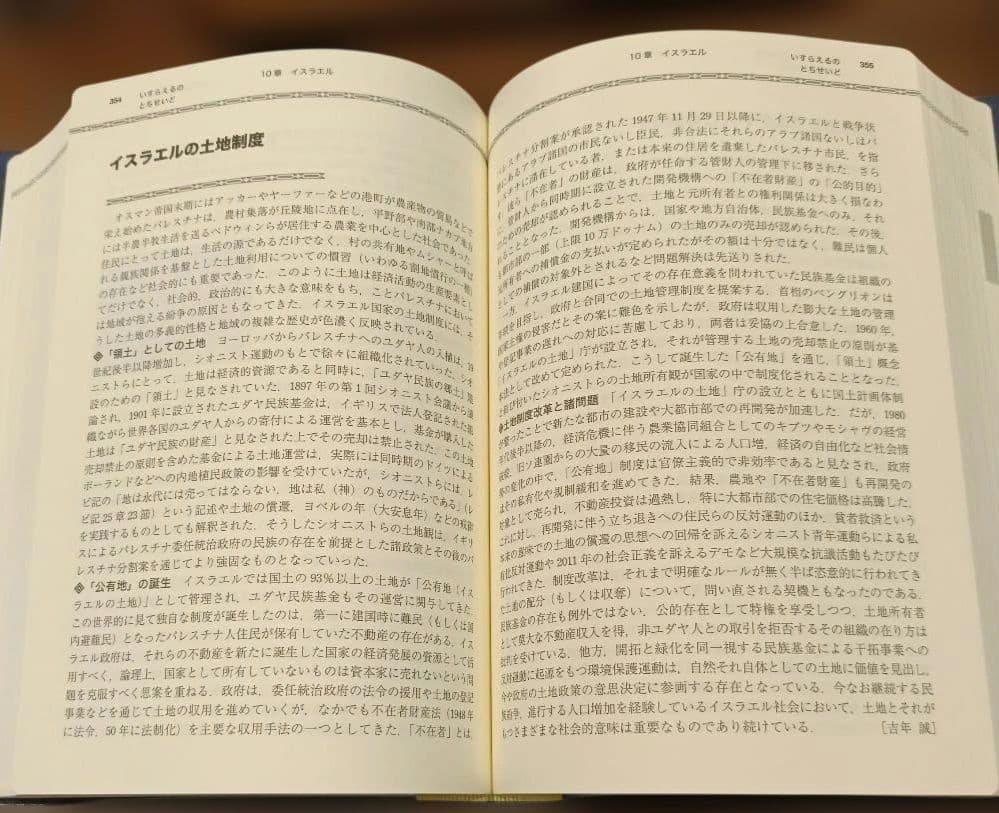 354
いすらえるの
とちせいど
10章 イスラエル
イスラエルの土地制度
オスマン帝国末期にはアッカーやヤーファーなどの港町が農産物の貿易などで
栄え始めたパレスチナは,農村集落が丘陵地に点在し,平野部や南部ナカブ集方
には半農半牧生活を送るベドウィンらが居住する農業を中心とした社会であった.
住民にとって土地は,生活の源であるだけでなく,村の共有地やムシャーと呼ば
れる親族関係を基盤とした土地利用についての慣習(いわゆる割地慣行の一種)
の存在など社会的にも重要であった.このように土地は経済活動の生産要素とし
てだけでなく,社会的,政治的にも大きな意味をもち,ことパレスチナにおいて
は地域が抱える紛争の原因ともなってきた.イスラエル国家の土地制度には,そ
うした土地の多義的性格と地域の複雑な歴史が色濃く反映されている.
◈「領土」としての土地 ヨーロッパからパレスチナへのユダヤ人の入植は,19
世紀後半以降増加し,シオニスト運動のもとで徐々に組織化されていった.シオ
ニストらにとって,土地は経済的資源であると同時に,「ユダヤ民族の郷土」建
設のための「領土」と見なされていた.1897年の第1回シオニスト会議から議
論され,1901年に設立されたユダヤ民族基金は,イギリスで法人登記された組
織ながら世界各国のユダヤ人からの寄付による運営を基本とし,基金が購入した
土地は「ユダヤ民族の財産」と見なされた上でその売却は禁止された.この土地
売却禁止の原則を含めた基金による土地運営は,実際には同時期のドイツによる
ポーランドなどへの内地植民政策の影響を受けていたが,シオニストらには,レ
ビ記の「地は永代には売ってはならない.地は私(神)のものだからである」(レ
ビ記25章23節)という記述や土地の償還,ヨベルの年(大安息年)などの戒律
を実践するものとしても解釈された.そうしたシオニストらの土地観は,イギリ
スによるパレスチナ委任統治政府の民族の存在を前提とした諸政策とその後のパ
レスチナ分割案を通じてより強固なものとなっていった.
◈「公有地」の誕生 イスラエルでは国土の93%以上の土地が「公有地(イス
ラエルの土地)」として管理され,ユダヤ民族基金もその運営に関与してきた.
この世界的に見て独自な制度が誕生したのは,第一に建国時に難民(もしくは国
内避難民)となったパレスチナ人住民が保有していた不動産の存在がある.イス
ラエル政府は,それらの不動産を新たに誕生した国家の経済発展の資源として活
用すべく,論理上,国家として所有していないものは資本家に売れないという問
題を克服すべく思案を重ねる.政府は,委任統治政府の法令の援用や土地の登記
事業などを通じて土地の収用を進めていくが,なかでも不在者財産法(1948年
に法令,50年に法制化)を主要な収用手法の一つとしてきた.「不在者」とは,
10章 イスラエル
いすらえるの
とちせいど
355
パレスチナ分割案が承認された1947年11月29日以降に,イスラエルと戦争状
にあるアラブ諸国の市民ないし臣民,非合法にそれらのアラブ諸国ないしはパ
レスチナに滞在している者,または本来の住居を遺棄したパレスチナ市民,を指
彼ら「不在者」の財産は,政府が任命する管財人の管理下に移された.さら
財産人から同時期に設立された開発機構への「不在者財産」の「公的目的」
のための売却が認められることで,土地と元所有者との権利関係は大きく損なわ
れることとなった.開発機構からは,国家や地方自治体,民族基金へのみ,それ
も都市部の一部(上限10万ドゥナム)の土地のみの売却が認められた.その後,
元所有者への補償金の支払いが定められたがその額は十分ではなく,難民は個人
としての補償の対象外とされるなど問題解決は先送りされた.
一方,イスラエル建国によってその存在意義を問われていた民族基金は組織の
を目指し,政府と合同での土地管理制度を提案する.首相のベングリオンは
国家主権の侵害だとその案に難色を示したが,政府は収用した膨大な土地の管理
や登記事業の遅れへの対応に苦慮しており,両者は妥協の上合意した.1960年,
「イスラエルの土地」庁が設立され,それが管理する土地の売却禁止の原則が基
本法として改めて定められた.こうして誕生した「公有地」を通じ,「領土」概念
と結び付いたシオニストらの土地所有観が国家の中で制度化されることとなった.
◈土地制度改革と諸問題 「イスラエルの土地」庁の設立とともに国土計画体制
が整ったことで新たな都市の建設や大都市部での再開発が加速した.だが,1980
年代後半以降の,経済危機に伴う農業協同組合としてのキブツやモシャヴの経営
破綻,旧ソ連圏からの大量の移民の流入による人口増,経済の自由化など社会情
勢の変化の中で,「公有地」制度は官僚主義的で非効率であると見なされ,政府
はその私有化や規制緩和を進めてきた.結果,農地や「不在者財産」も再開発の
対象として売られ,不動産投資は過熱し,特に大都市部での住宅価格は高騰した.
これに対し,再開発に伴う立ち退きへの住民らの反対運動のほか,貧者救済という
本来の意味での土地の償還の思想への回帰を訴えるシオニスト青年運動らによる私
有化反対運動や2011年の社会正義を訴えるデモなど大規模な抗議活動もたびたび
行われてきた.制度改革は,それまで明確なルールが無く半ば恣意的に行われてき
た土地の配分(もしくは収奪)について,問い直される契機ともなったのである.
民族基金の存在も例外ではない.公的存在として特権を享受しつつ,土地所有者
として莫大な不動産収入を得,非ユダヤ人との取引を拒否するその組織の在り方は
批判を受けている.他方,開拓と緑化を同一視する民族基金による干拓事業への
反対運動に起源をもつ環境保護運動は,自然それ自体としての土地に価値を見出し,
今や政府の土地政策の意思決定に参画する存在となっている.今なお継続する民
族紛争,進行する人口増加を経験しているイスラエル社会において,土地とそれが
もつさまざまな社会的意味は重要なものであり続けている.
[吉年 誠]